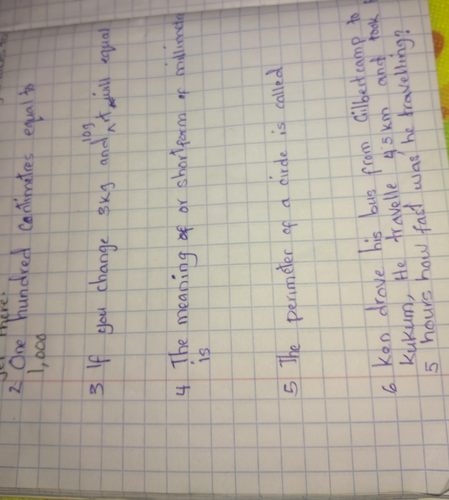 2 One hundred centimetres equal to
1,000
3 If you change 3kg and 10g it will equal
4 The meaning of or shortform of millimetre
is
5 The perimeter of a circle is called
6 Ken drove his bus from Gilbertcamp to
Kukum, He travelle 45km and took
5 hours how fast was he travelling?